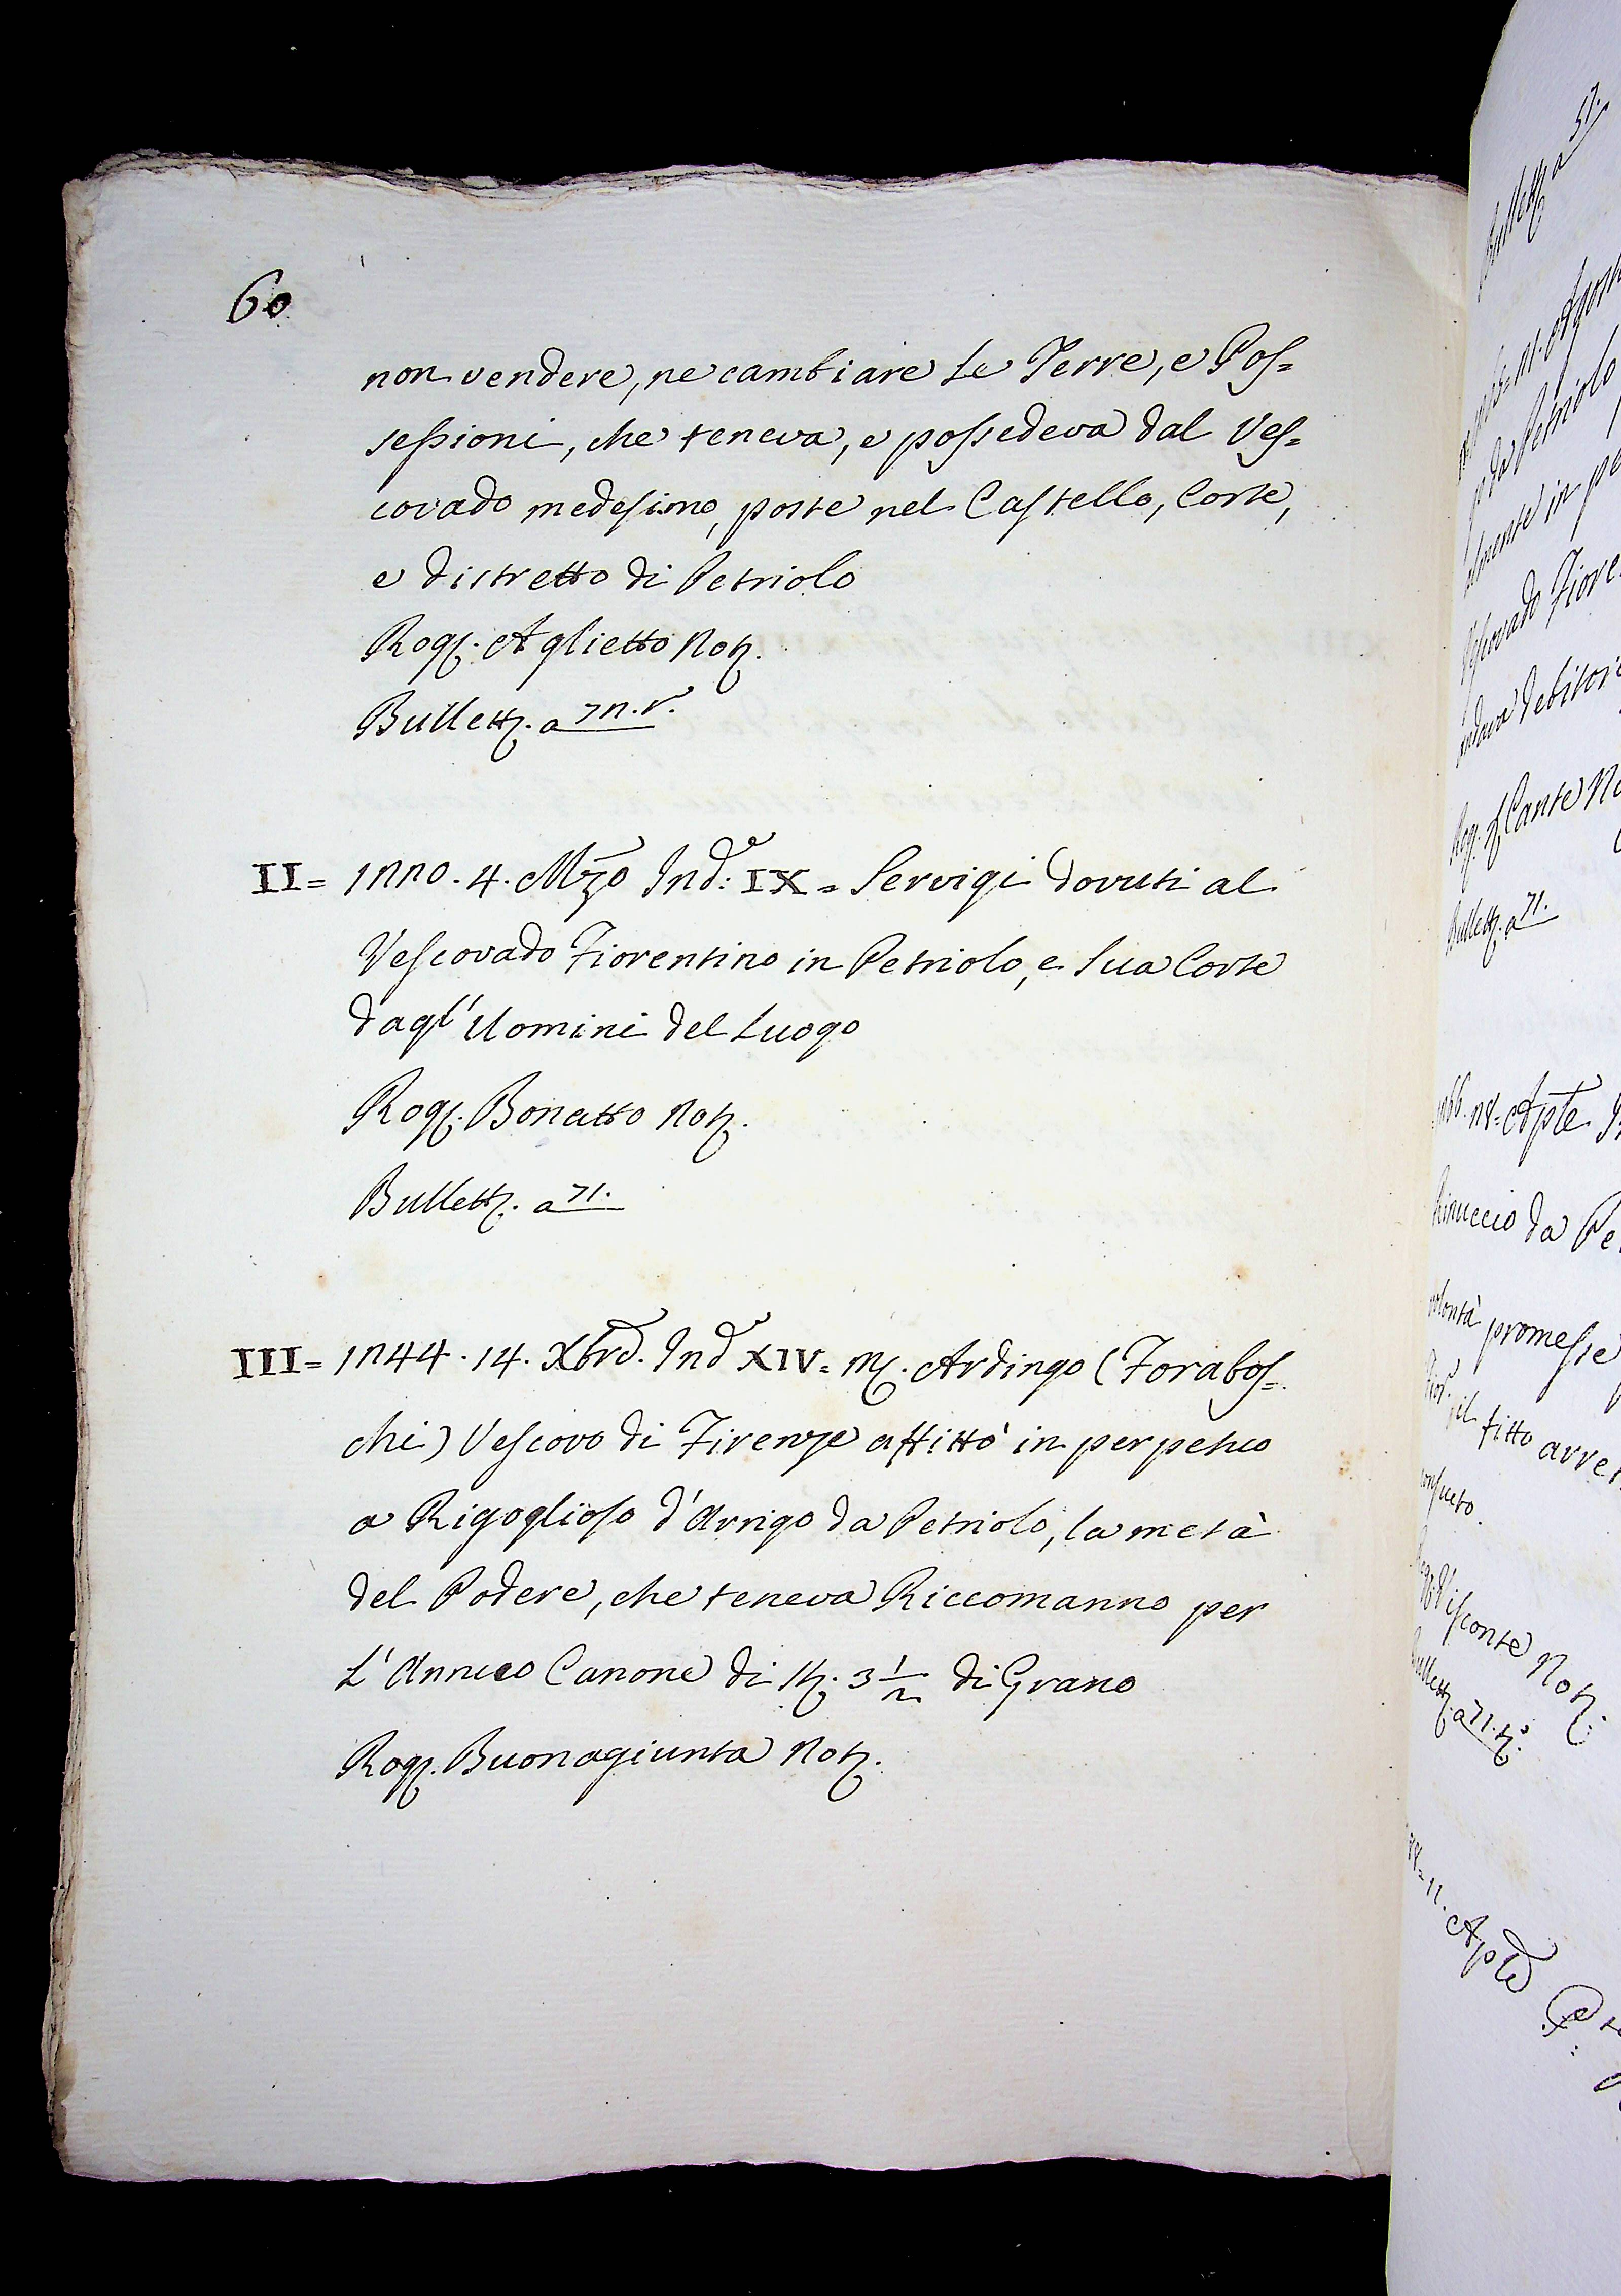 60
non vendere, ne cambiare le Terre, e Pos=
sessioni, che teneva, e possedeva dal Ves=
covado medesimo, poste nel Castello, Corte,
e distretto di Petriolo
Rog. Aglietto Not.
Bullett. a 72. r.
II = 1220. 4. Mzo Ind: IX = Servigi dovuti al
Vescovado Fiorentino in Petriolo, e sua Corte
dagl' Uomini del Luogo
Rog. Bonatto Not.
Bullett. a 71.
III = 1244. 14. Xbre. Ind XIV = M. Ardingo (Forabos=
chi) Vescovo di Firenze affittò in perpetuo
a Rigoglioso d'Arrigo da Petriolo, la metà
del Podere, che teneva Riccomanno per
L'Annuo Canone di St. 3 1/2 di Grano
Rog. Buonagiunta Not.
Bullett. a 51.
da Petriolo
in per
Vescovado Fiore
debitor
Rog. Cante No
Bullett. a 71.
28 = Aple
Rinuccio da Pe
volontà promesse
il fitto avve
consueto.
Visconte Not.
Bullett. a 71. t.
11. Aple